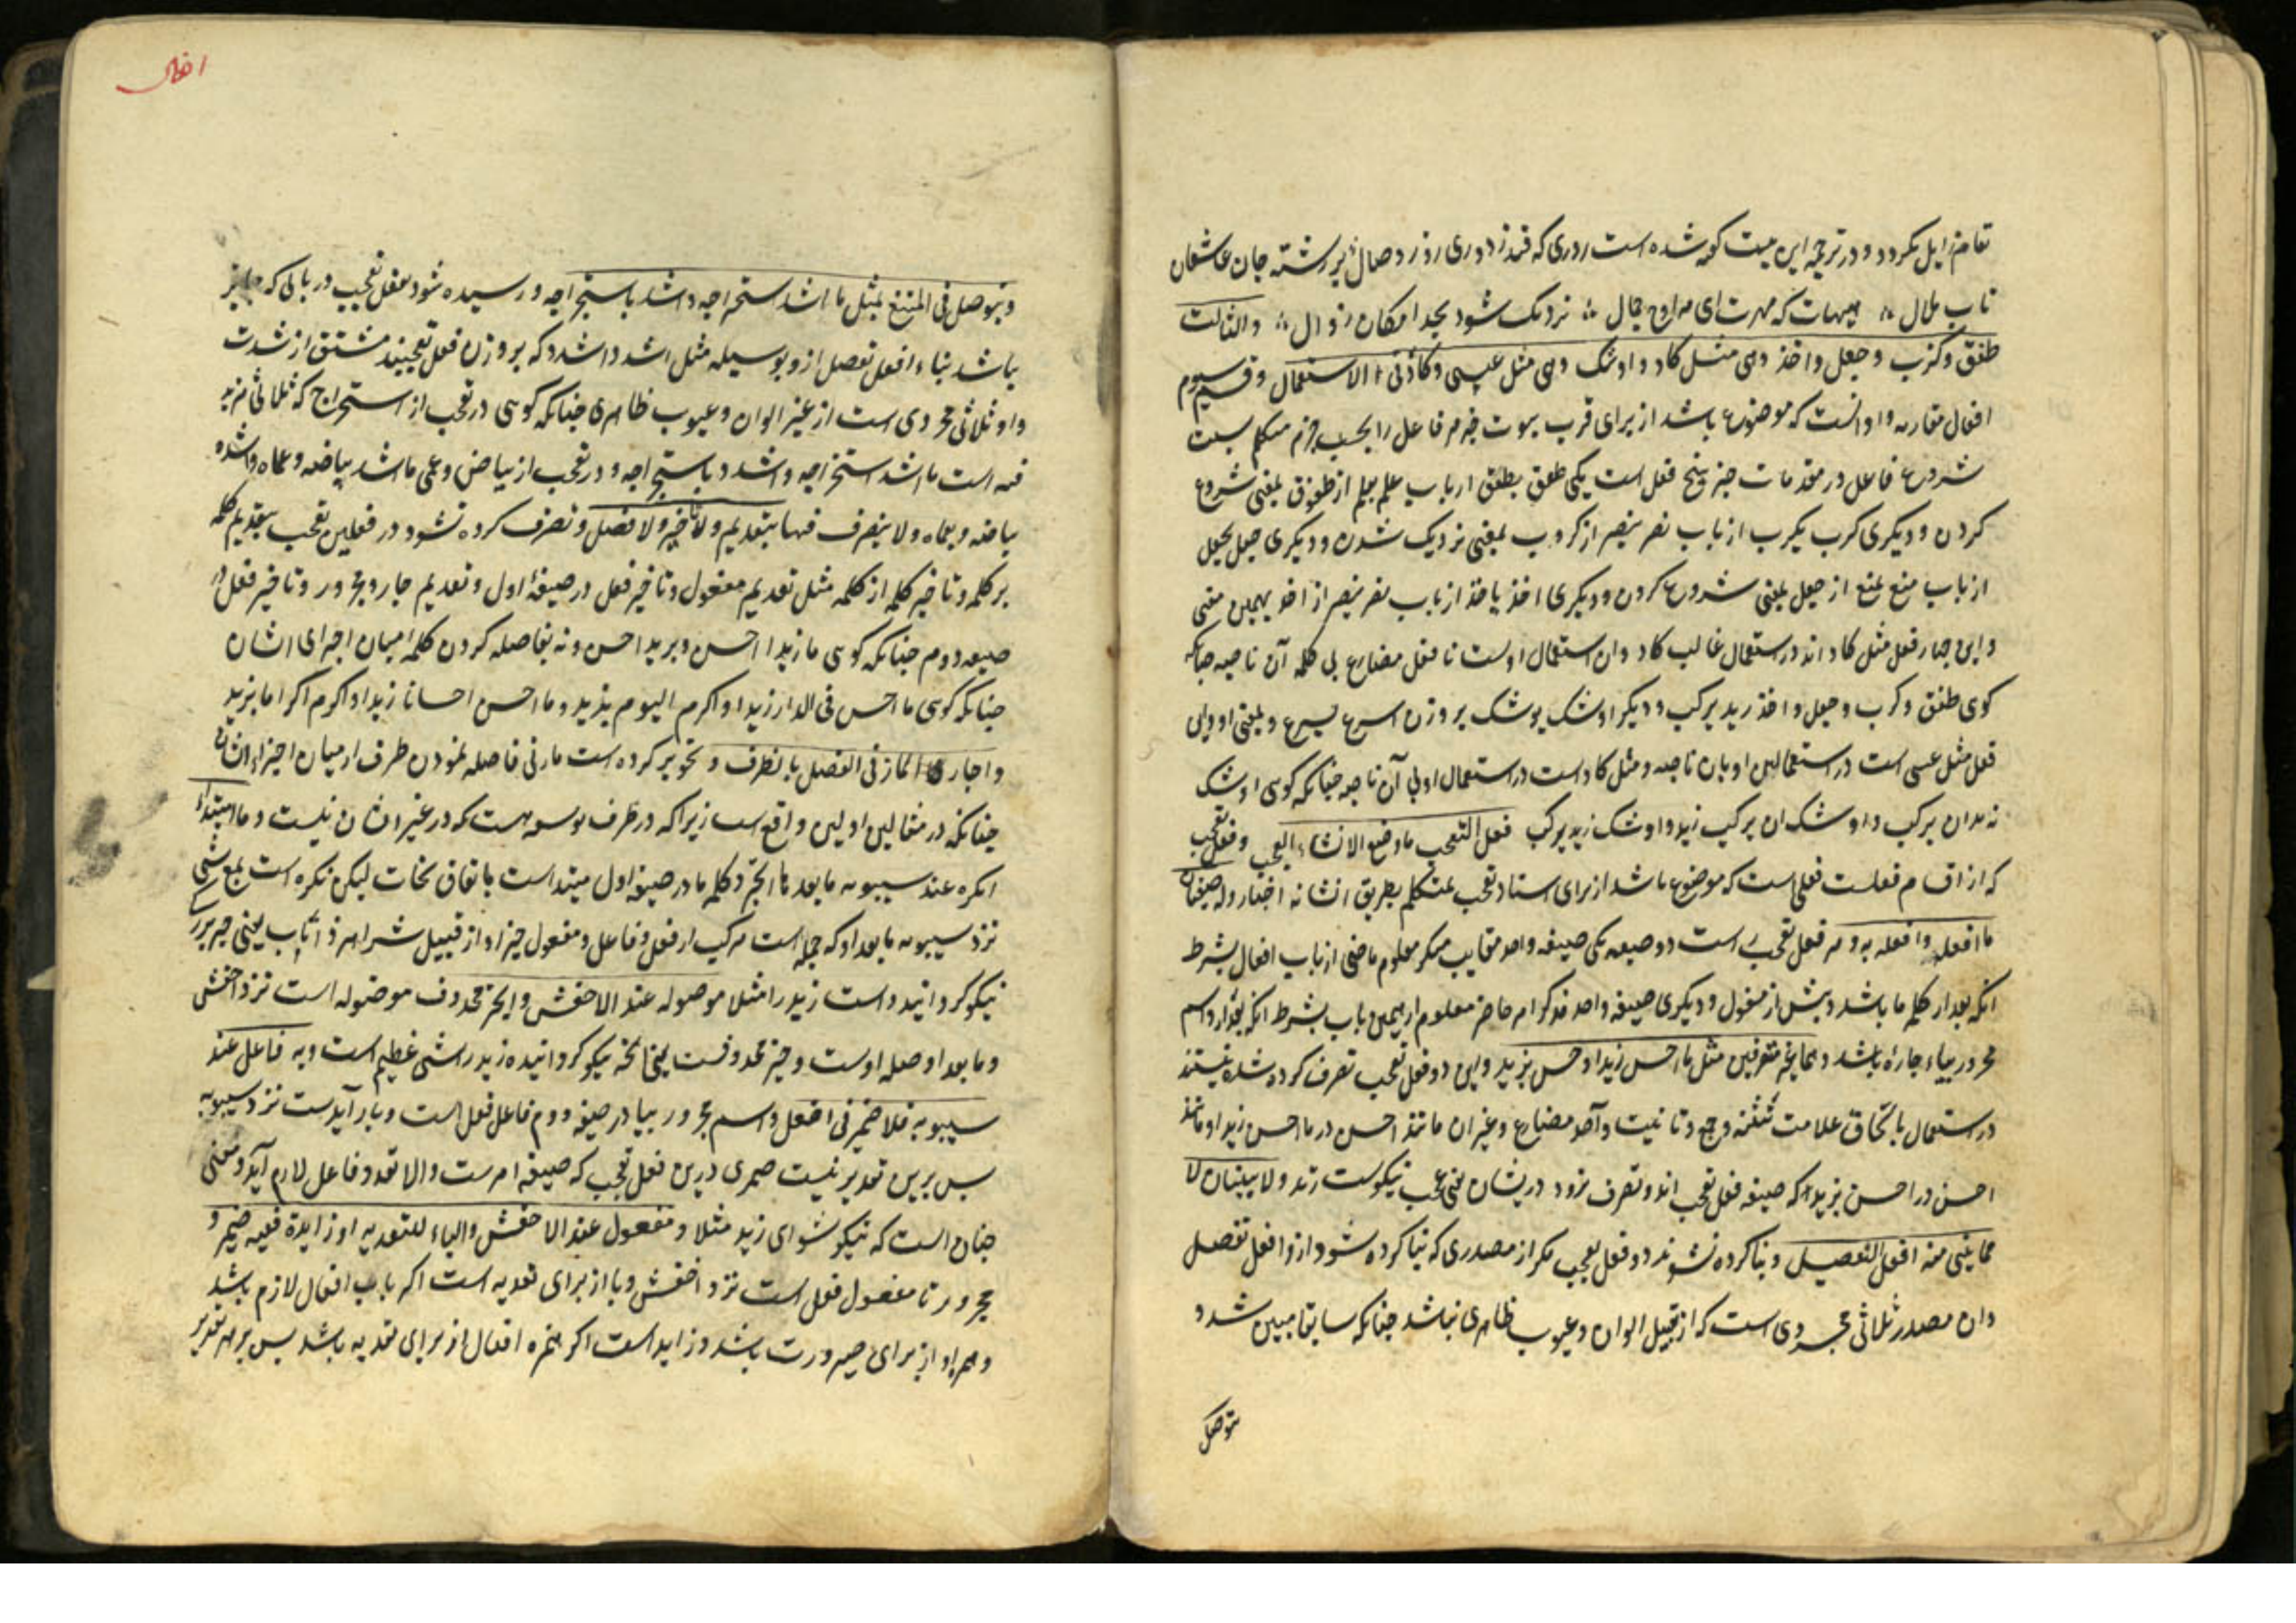 تعام زایل نکردد و در ترجمه این بیت کوشده است ردری که فتد ز دوری روز وصال بر رشته جان عاشقان
تاب ملال هیهات که مهرت ای مه اوج جمال نزدیک شود بحد امکان زوال والثالث
طفق وکرب وجعل واخذ وهی مثل کاد واوشک وهی مثل عسی وکاد فی الاستعمال وقسم سیوم
افعال مقاربه واو آنست که موضوع باشد از برای قرب ثبوت خبر مر فاعل را بحسب جزم متکلم بسبب
شروع فاعل در مقدمات خبر وپنج فعل است یکی طفق یطفق از باب علم یعلم از طفوق بمعنی شروع
کردن ودیکری کرب یکرب از باب نصر ینصر از کروب بمعنی نزدیک شدن ودیکری جعل یجعل
از باب منع یمنع از جعل بمعنی شروع کردن ودیکری اخذ یاخذ از باب نصر ینصر از اخذ بهمین معنی
واین چهار فعل مثل کاد اند در استعمال غالب کاد وان استعمال اوست با فعل مضارع بی کلمه آن ناصبه چنانکه
کوی طفق وکرب وجعل واخذ زید یرکب ودیکر اوشک یوشک بر وزن اسرع یسرع وبمعنی او واین
فعل مثل عسی است در استعمالین او بان ناصبه ومثل کاد است در استعمال او بی آن ناصبه چنانکه کوی اوشک
زید ان یرکب واوشک ان یرکب زید واوشک زید یرکب فعل التعجب ما وضع لانشاء التعجب وفعل تعجب
که از اقسام فعلست فعلی است که موضوع باشد از برای انشاء تعجب متکلم بطریق انشا نه اخبار وله صیغتان
ما افعله وافعل به ومر فعل تعجب راست دو صیغه یکی صیغه واحد مغایب مذکر معلوم ماضی از باب افعال بشرط
انکه بعد از کلمه ما باشد وپیش از مفعول ودیکری صیغه واحد مذکر امر حاضر معلوم از همین باب بشرط انکه بعد از او اسم
مجرور بباء جاره باشد وهما غیر متصرفین مثل ما احسن زیدا واحسن بزید واین دو فعل تعجب تصرف کرده شده نیستند
در استعمال بالحاق علامت تثنیه وجمع وتانیث واخذ مضارع وغیر ان مانند احسن در ما احسن زیدا ومانند
احسن در احسن بزید که صیغه فعل تعجب اند وتصرف نرود در ایشان معنی عجب نیکوست زید ولا یبنیان الا
مما یبنی منه افعل التفضیل وبنا کرده نشوند دو فعل تعجب مکر از مصدری که بنا کرده شود از او افعل تفضیل
وان مصدر ثلاثی مجردی است که از قبیل الوان وعیوب ظاهری نباشد چنانکه سابقا مبین شد و
یتوصل
افعال
ویتوصل فی الممتنع بمثل ما اشد استخراجه واشدد باستخراجه ورسیده شود بفعل تعجب در بابی که جایز
باشد بناء افعل تفضیل از او بوسیله مثل اشد واشدد که بر وزن فعل تعجبیند مشتق از شدت
واو ثلاثی مجردی است از غیر الوان وعیوب ظاهری چنانکه کوسی در تعجب از استخراج که ثلاثی مزید
فیه است ما اشد استخراجه واشدد باستخراجه ودر تعجب از بیاض وعمی ما اشد بیاضه وعماه واشدد
بیاضه وبعماه ولا یتصرف فیهما بتقدیم ولا تاخیر ولا فصل وتصرف کرده نشود در فعلین تعجب بتقدیم کلمه
بر کلمه وتاخیر کلمه از کلمه مثل تقدیم مفعول وتاخیر فعل در صیغه اول وتقدیم جار ومجرور وتاخیر فعل در
صیغه دوم چنانکه کوسی ما زیدا احسن وبزید احسن ونه بفاصله کردن کلمه میان اجزای ایشان
چنانکه کوسی ما احسن فی الدار زیدا واکرم الیوم بزید وما احسن احسانا زیدا واکرم اکراما بزید
واجاز المازنی الفصل بالظرف وتجویز کرده است مازنی فاصله نمودن ظرف از میان اجزاء ایشان
چنانکه در مثالین اولین واقع است زیرا که در ظرف توسعه هست که در غیر ان نیست وما ابتداء
نکره عند سیبویه ما بعدها الخبر وکلمه ما در صیغه اول مبتداست باتفاق نحات لیکن نکره است بمعنی شی
نزد سیبویه ما بعد او که جمله است مرکب از فعل وفاعل ومفعول خبر او از قبیل شر اهر ذا ناب یعنی چیز بزرک
نیکو کردانیده است زید را مثلا موصوله عند الاخفش والخبر محذوف موصوله است نزد اخفش
وما بعد او صله اوست وخبر محذوفست یعنی انچه نیکو کردانیده زید را شی عظیم است وبه فاعل عند
سیبویه فلا ضمیر فی افعل واسم مجرور ببا در صیغه دوم فاعل فعل است وبا زایدست نزد سیبویه
پس برین تقدیر نیست ضمیری درین فعل تعجب که صیغه امرست والا تعدد فاعل لازم آید ومعنی
چنان است که نیکو شو ای زید مثلا ومفعول عند الاخفش والباء للتعدیه او زایدة ففیه ضمیر و
مجرور با مفعول فعل است نزد اخفش وبا از برای تعدیه است اکر باب افعال لازم باشد
وهمزه او از برای صیرورت باشد وزایداست اکر همزه افعال از برای تعدیه باشد پس بر هر تقدیر